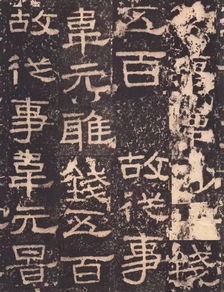 錢
五百故從事
韋元雅錢五百
故從事韋元景